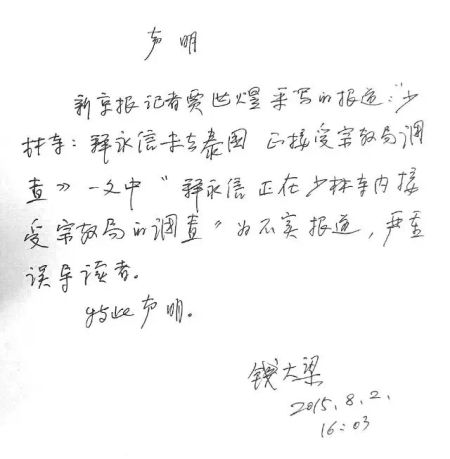 声明
新京报记者贾世煜采写的报道:"少
林寺：释永信未去泰国 正接受宗教局调
查》一文中"释永信正在少林寺内接
受宗教局的调查"为不实报道，严重
误导读者。
特此声明。
钱大梁
2015.8.2.
16:03